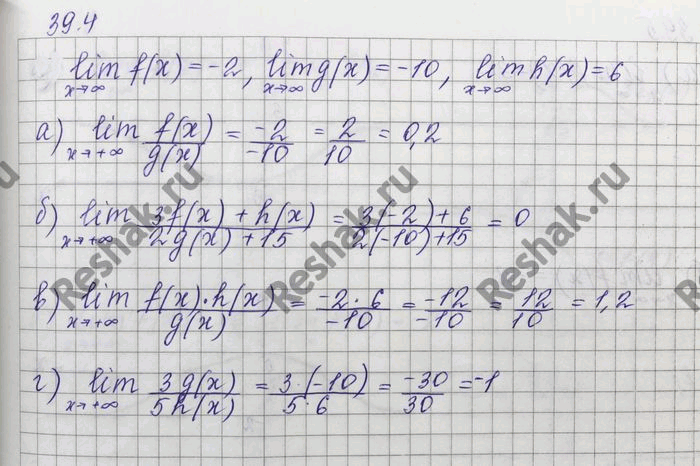 39.4
lim f(x) = -2, lim g(x) = -10, lim h(x) = 6
x→∞ x→∞ x→∞
а) lim f(x)/g(x) = -2/-10 = 2/10 = 0,2
x→+∞
б) lim 3f(x) + h(x)/2g(x) + 15 = 3(-2) + 6/2(-10) + 15 = 0
x→+∞
в) lim f(x)·h(x)/g(x) = -2·6/-10 = -12/-10 = 12/10 = 1,2
x→+∞
г) lim 3g(x)/5h(x) = 3·(-10)/5·6 = -30/30 = -1
x→+∞
Reshak.ru
Reshak.ru
Reshak.ru
Reshak.ru